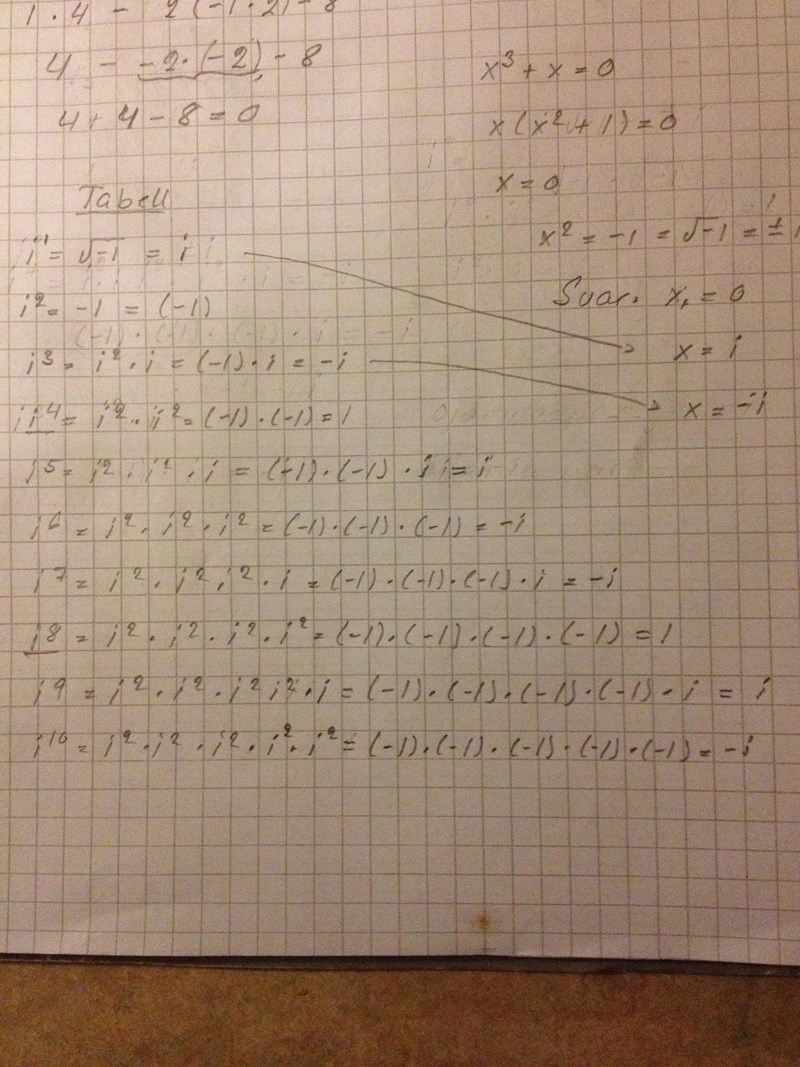 1 · 4 - 2(-1·2)-8
4 - -2·(-2) - 8
4 + 4 - 8 = 0
x³ + x = 0
x(x² + 1) = 0
x = 0
x² = -1 = √-1 = ±i
Svar. x, = 0
x = i
x = -i
Tabell
i¹ = √-1 = i
i² = -1 = (-1)
i³ = i² · i = (-1) · i = -i
i⁴ = i² · i² = (-1) · (-1) = 1
i5 = i² · i² · i = (-1) · (-1) · i = i
i6 = i² · i² · i² = (-1) · (-1) · (-1) = -i
i7 = i² · i² · i² · i = (-1) · (-1) · (-1) · i = -i
i8 = i² · i² · i² · i² = (-1) · (-1) · (-1) · (-1) = 1
i9 = i² · i² · i² i² · i = (-1) · (-1) · (-1) · (-1) · i = i
i¹⁰ = i² · i² · i² · i² · i² = (-1) · (-1) · (-1) · (-1) · (-1) = -i